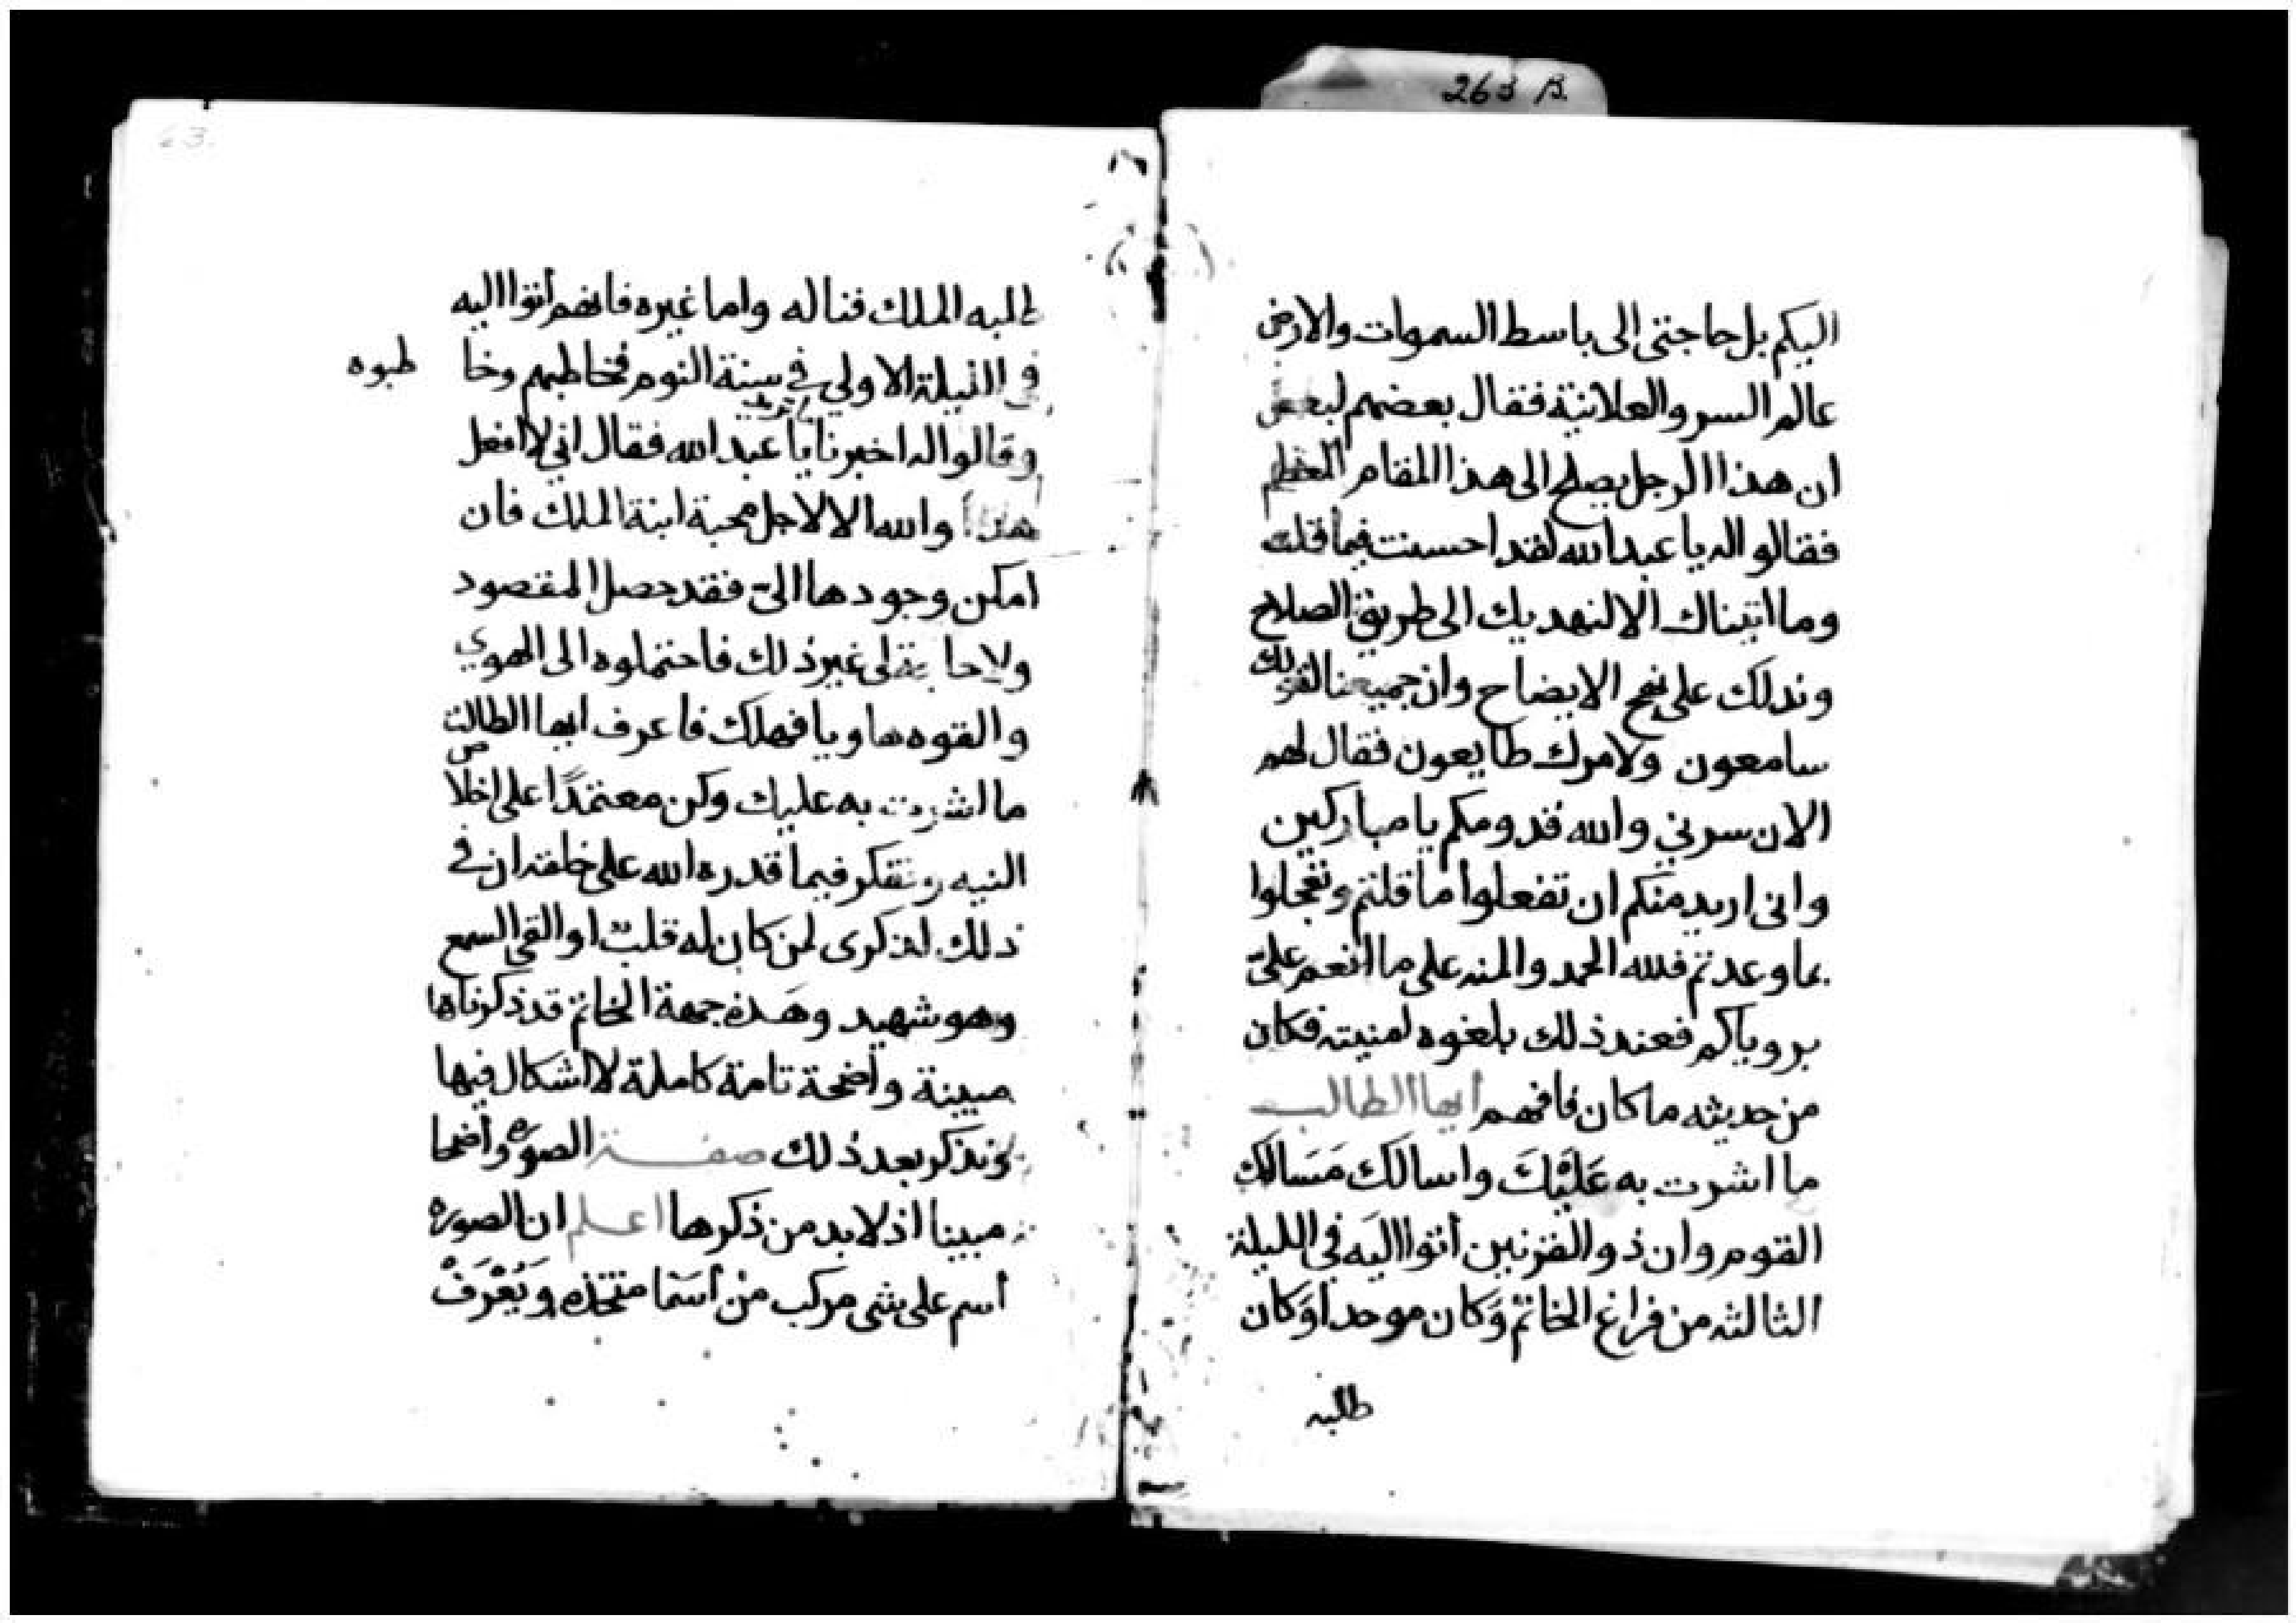 263 B.
اليكم بل حاجتى الى باسط السموات والارض
عالم السر والعلانية فقال بعضهم لبعض
ان هذا الرجل يصلح الى هذا المقام العظيم
فقالوا له يا عبد الله لقد احسنت فيما قلت
وما اتيناك الا لنهديك الى طريق الصلاح
وندلك على نهج الايضاح وان جميعنا لقولك
سامعون ولامرك طايعون فقال لهم
الان سرني والله قدومكم يا مباركين
وانى اريد منكم ان تفعلوا ما قلتم وتعجلوا
بما وعدتم فلله الحمد والمنه على ما انعم علىّ
بروياكم فعند ذلك بلغوه امنيته فكان
من حديثه ما كان فافهم أيها الطالب
ما اشرت به عَليْكَ واسالك مَسَالك
القوم وان ذو القرنين أتوا اليَه في الليلة
الثالثه من فراغ الخاتم وَكان موحدا وَكان
طلبه
63.
طلبه الملك فناله واما غيره فانهم أتوا اليه
في الليلة الاولي في سِنة النوم فخاطبهم وخا
طبوه
وقالوا له اخبرنا يا عبد الله فقال اني لا افعل
هذا والله الا لاجل محبة ابنة الملك فان
امكن وجودها الىّ فقد حصل المقصود
ولا حاجة لى غير ذلك فاحتملوه الى الهوي
والقوه هاويا فهلك فاعرف ايها الطالب
ما اشرت به عليك وكن معتمدًا على اخلاص
النيه وتفكر فيما قدره الله على خلقه ان في
ذلك لذكرى لمن كان له قلب او القى السمع
وهو شهيد وهَذه جمهة الخاتم قد ذكرناها
مبينة واضحة تامة كاملة لا اشكال فيها
ونذكر بعد ذلك صفة الصوره واضحا
مبينا اذ لا بد من ذكرها اعلم ان الصوره
أسم على شى مركب منْ أسَما متخذه وَيُعْرَفْ